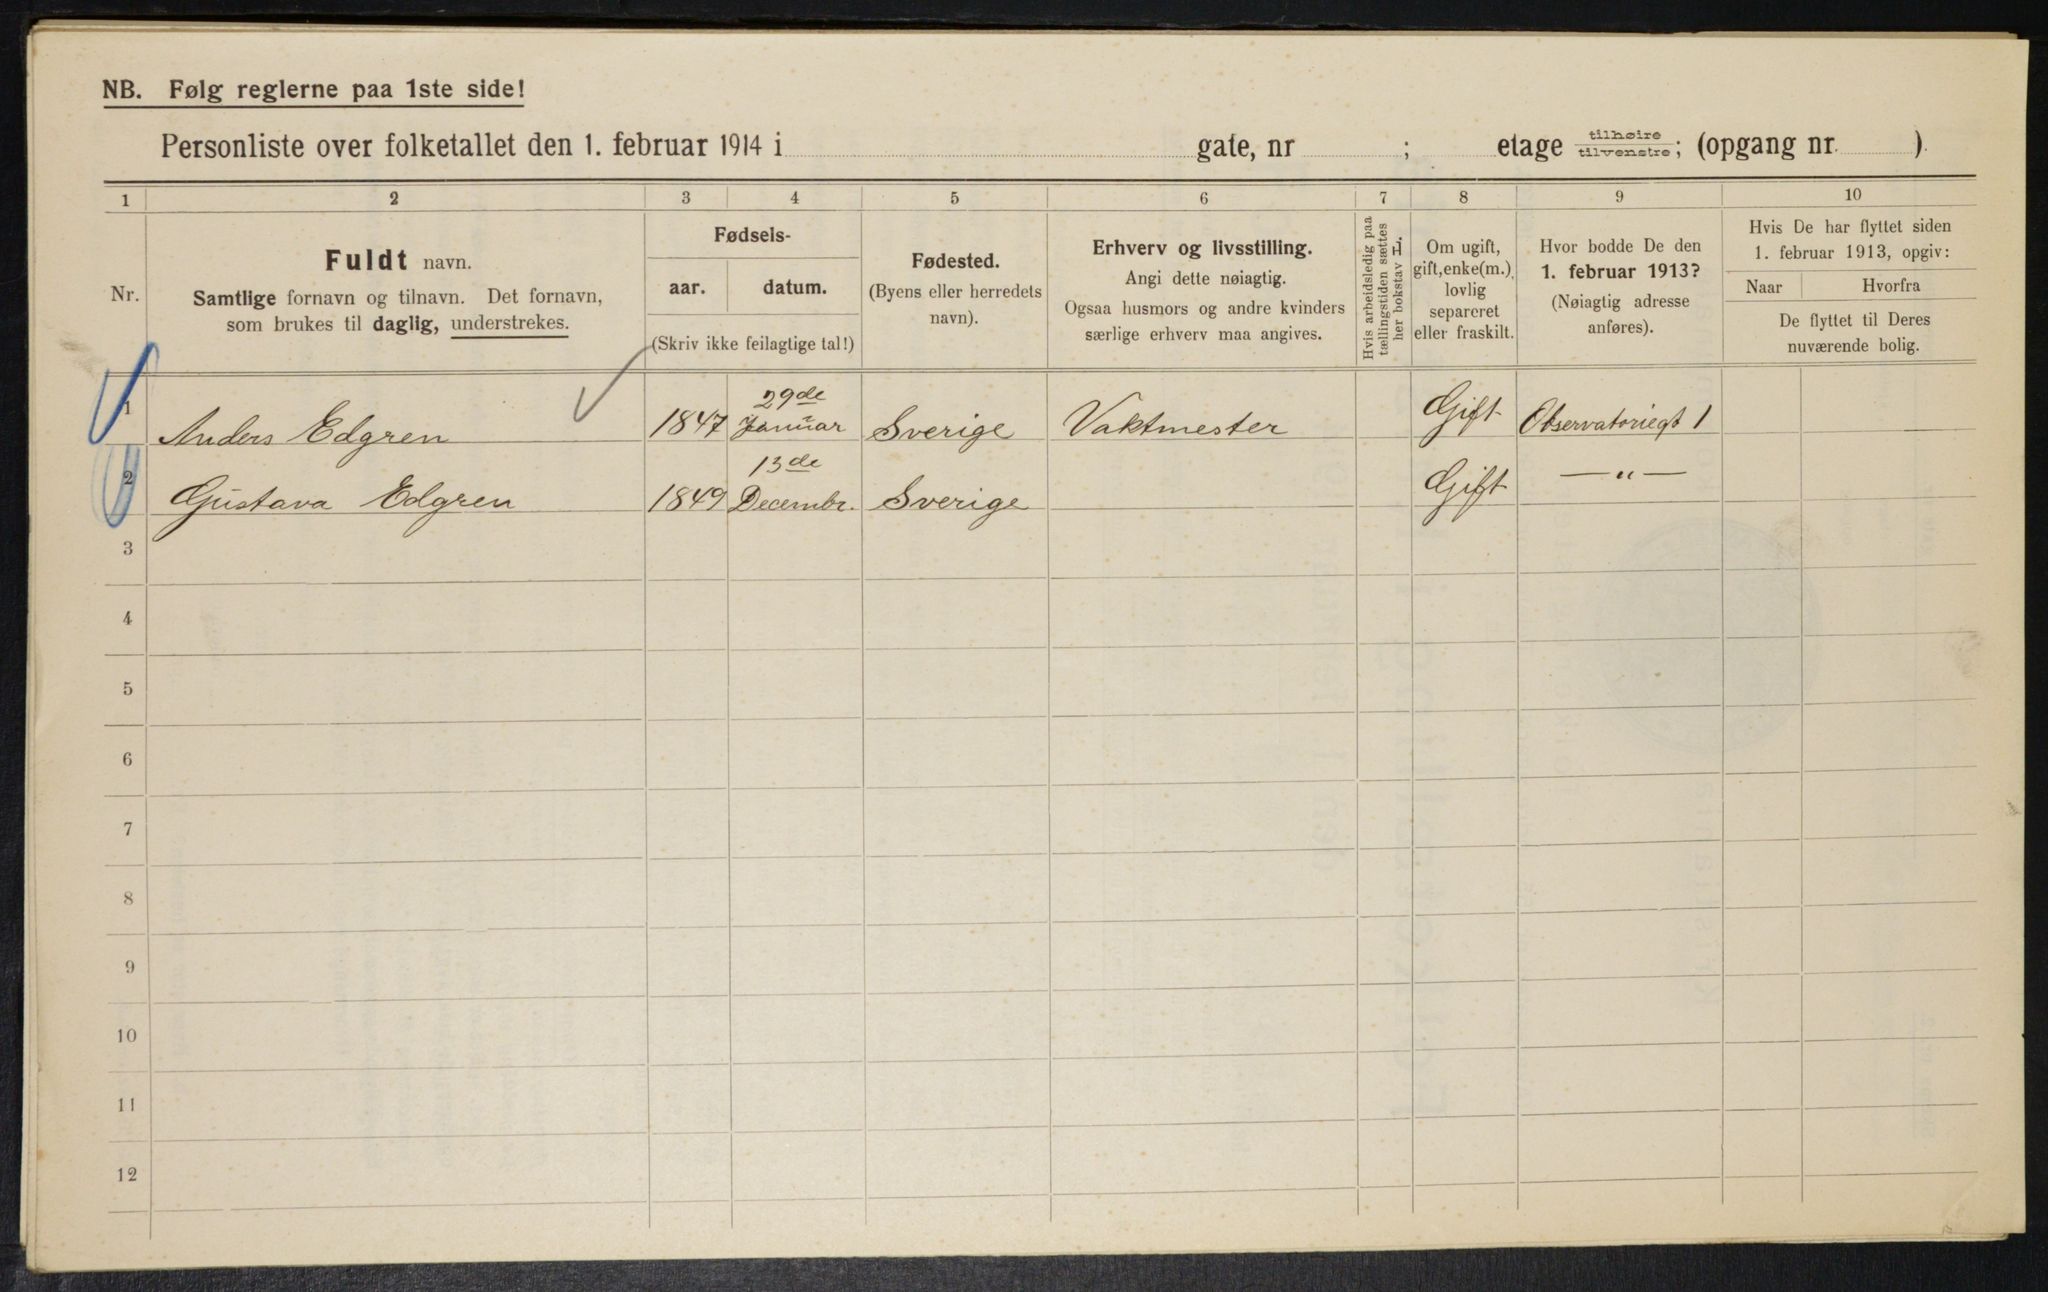 NB. Følg reglerne paa 1ste side!
Personliste over folketallet den 1. februar 1914 i gate, nr ; etage tilhøire tilvenstre; (opgang nr. ).
1 2 3 4 5 6 7 8 9 10
Nr.
Fuldt navn.
Samtlige fornavn og tilnavn. Det fornavn,
som brukes til daglig, understrekes.
Fødsels-
aar. datum.
(Skriv ikke feilagtige tal!)
Fødested.
(Byens eller herredets
navn).
Erhverv og livsstilling.
Angi dette nøiagtig.
Ogsaa husmors og andre kvinders
særlige erhverv maa angives.
Hvis arbeidsledig paa
tællingstiden sættes
her bokstav L.
Om ugift,
gift, enke(m.),
lovlig
separeret
eller fraskilt.
Hvor bodde De den
1. februar 1913?
(Nøiagtig adresse
anføres).
Hvis De har flyttet siden
1. februar 1913, opgiv:
Naar Hvorfra
De flyttet til Deres
nuværende bolig.
1 Anders Edgren 1847 29de Januar Sverige Vaktmester Gift Observatoriegt 1
2 Gustava Edgren 1849 13de Decembr. Sverige Gift — " —
3
4
5
6
7
8
9
10
11
12